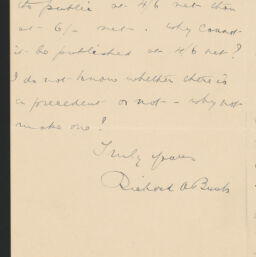 to public at 4/6 net than
at 6/- net. Why cannot
it be published at 4/6 net?
I do not know whether there is
a precedent or not - why not
make one?
Truly yours
Richard A Bush